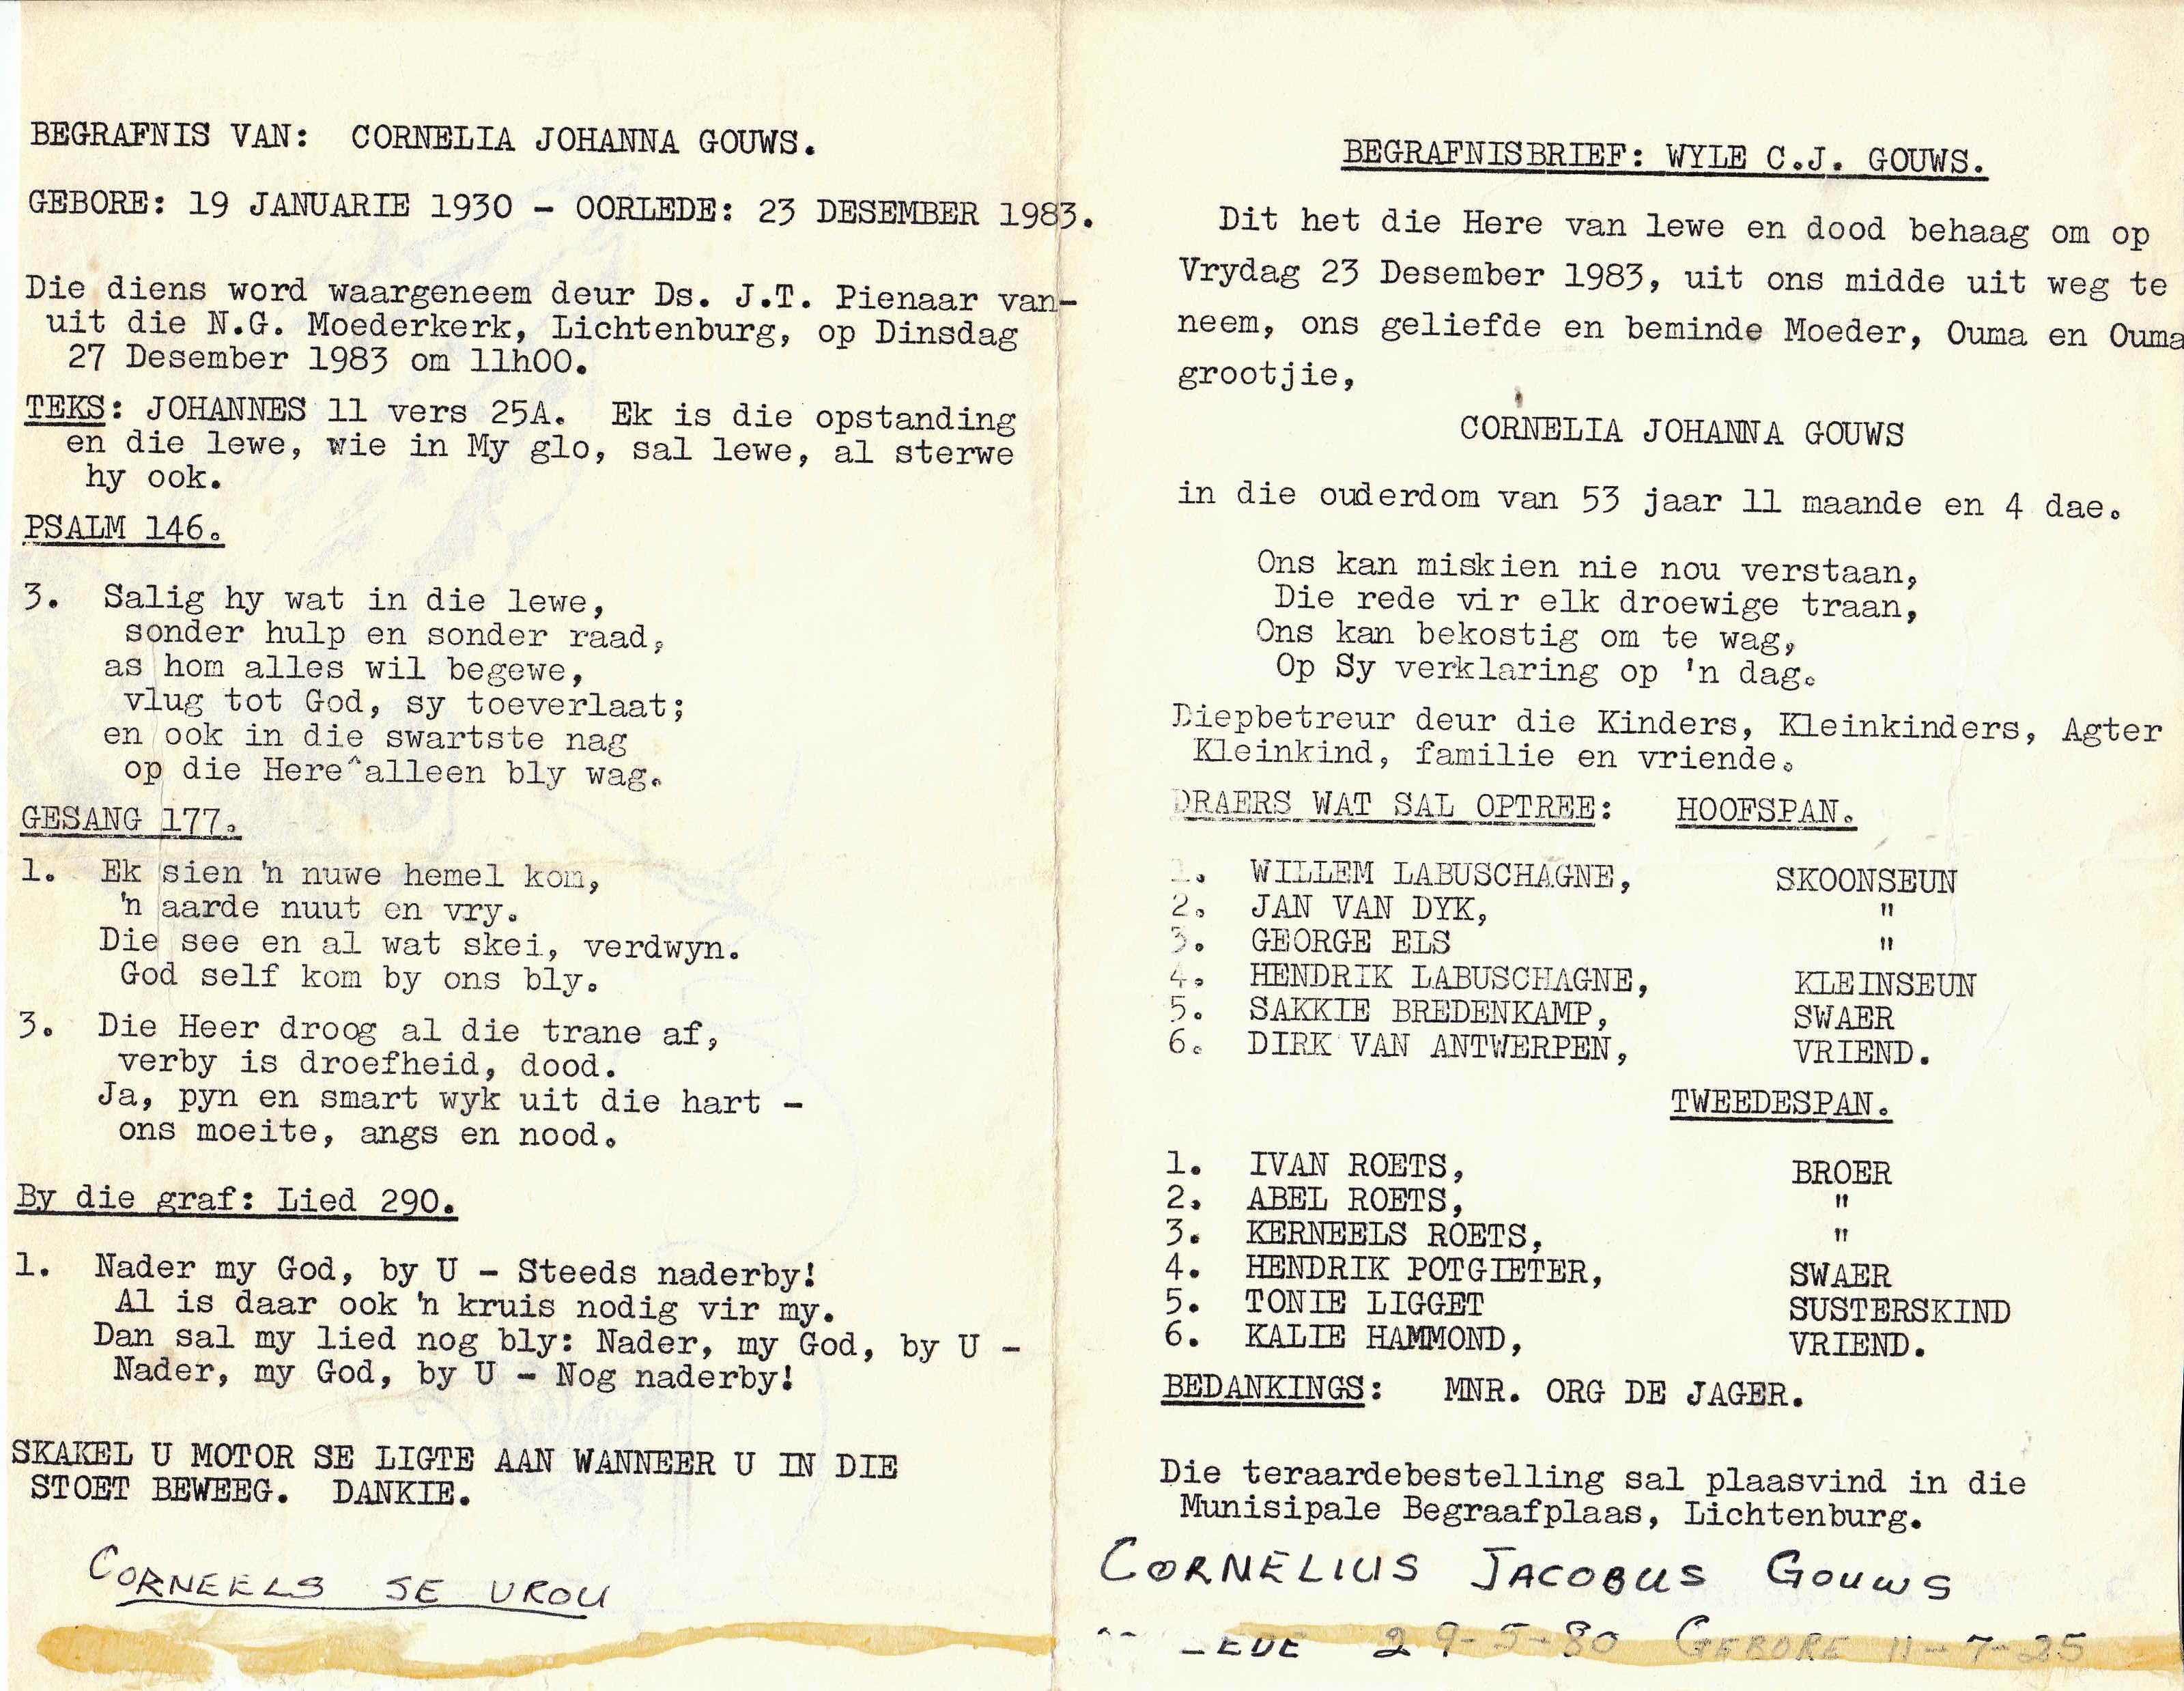 BEGRAFNIS VAN: CORNELIA JOHANNA GOUWS.
GEBORE: 19 JANUARIE 1930 - OORLEDE: 23 DESEMBER 1983.
Die diens word waargeneem deur Ds. J.T. Pienaar van-
uit die N.G. Moederkerk, Lichtenburg, op Dinsdag
27 Desember 1983 om 11h00.
TEKS: JOHANNES 11 vers 25A. Ek is die opstanding
en die lewe, wie in My glo, sal lewe, al sterwe
hy ook.
PSALM 146.
3. Salig hy wat in die lewe,
sonder hulp en sonder raad,
as hom alles wil begewe,
vlug tot God, sy toeverlaat;
en ook in die swartste nag
op die Here^alleen bly wag.
GESANG 177.
1. Ek sien 'n nuwe hemel kom,
'n aarde nuut en vry.
Die see en al wat skei, verdwyn.
God self kom by ons bly.
3. Die Heer droog al die trane af,
verby is droefheid, dood.
Ja, pyn en smart wyk uit die hart -
ons moeite, angs en nood.
By die graf: Lied 290.
1. Nader my God, by U - Steeds naderby!
Al is daar ook 'n kruis nodig vir my.
Dan sal my lied nog bly: Nader, my God, by U -
Nader, my God, by U - Nog naderby!
SKAKEL U MOTOR SE LIGTE AAN WANNEER U IN DIE
STOET BEWEEG. DANKIE.
CORNEELS SE VROU
BEGRAFNISBRIEF: WYLE C.J. GOUWS.
Dit het die Here van lewe en dood behaag om op
Vrydag 23 Desember 1983, uit ons midde uit weg te
neem, ons geliefde en beminde Moeder, Ouma en Ouma
grootjie,
CORNELIA JOHANNA GOUWS
in die ouderdom van 53 jaar 11 maande en 4 dae.
Ons kan miskien nie nou verstaan,
Die rede vir elk droewige traan,
Ons kan bekostig om te wag,
Op Sy verklaring op 'n dag.
Diepbetreur deur die Kinders, Kleinkinders, Agter
Kleinkind, familie en vriende.
DRAERS WAT SAL OPTREE: HOOFSPAN.
1. WILLEM LABUSCHAGNE, SKOONSEUN
2. JAN VAN DYK, "
3. GEORGE ELS "
4. HENDRIK LABUSCHAGNE, KLEINSEUN
5. SAKKIE BREDENKAMP, SWAER
6. DIRK VAN ANTWERPEN, VRIEND.
TWEEDESPAN.
1. IVAN ROETS, BROER
2. ABEL ROETS, "
3. KERNEELS ROETS, "
4. HENDRIK POTGIETER, SWAER
5. TONIE LIGGET SUSTERSKIND
6. KALIE HAMMOND, VRIEND.
BEDANKINGS: MNR. ORG DE JAGER.
Die teraardebestelling sal plaasvind in die
Munisipale Begraafplaas, Lichtenburg.
CORNELIUS JACOBUS GOUWS
29-5-80 GEBORE 11-7-25